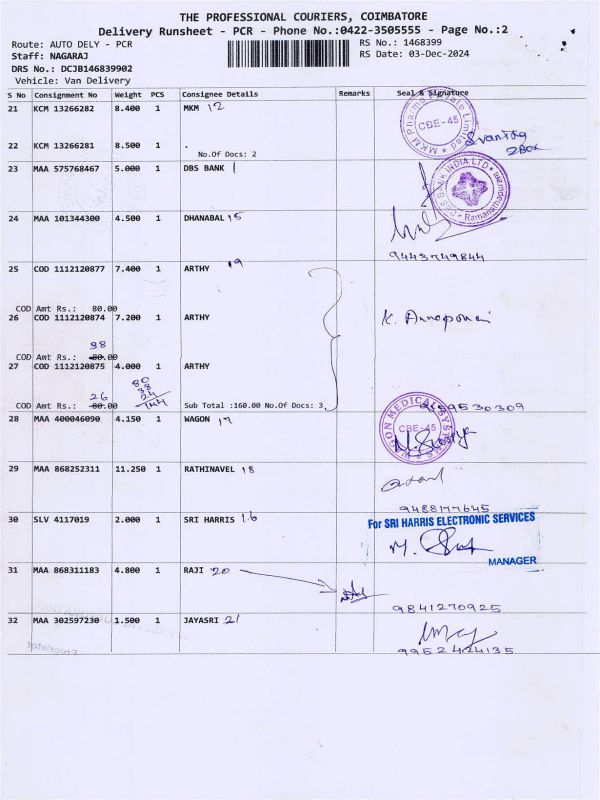 THE PROFESSIONAL COURIERS, COIMBATORE
Delivery Runsheet - PCR - Phone No.:0422-3505555 - Page No.:2
Route: AUTO DELY - PCR RS No.: 1468399
Staff: NAGARAJ RS Date: 03-Dec-2024
DRS No.: DCJB146839902
Vehicle: Van Delivery
S No Consignment No Weight PCS Consignee Details Remarks Seal & Signature
21 KCM 13266282 8.400 1 MKM 12
CBE-45
22 KCM 13266281 8.500 1 .
No.Of Docs: 2 2Box
23 MAA 575768467 5.000 1 DBS BANK 1
DBS BANK INDIA LTD Ramanathapuram
24 MAA 101344300 4.500 1 DHANABAL 15
9443749844
25 COD 1112120877 7.400 1 ARTHY 19
COD Amt Rs.: 80.00
26 COD 1112120874 7.200 1 ARTHY
38
COD Amt Rs.: 80.00
27 COD 1112120875 4.000 1 ARTHY
80
38
26
COD Amt Rs.: 80.00 144 Sub Total :160.00 No.Of Docs: 3
28 MAA 400046090 4.150 1 WAGON 17
WAGON MEDICAL SYSTEMS
CBE-45
29 MAA 868252311 11.250 1 RATHINAVEL 18
9488177645
30 SLV 4117019 2.000 1 SRI HARRIS 16
For SRI HARRIS ELECTRONIC SERVICES
MANAGER
31 MAA 868311183 4.800 1 RAJI 20
9841270925
32 MAA 302597230 1.500 1 JAYASRI 21
9952424135